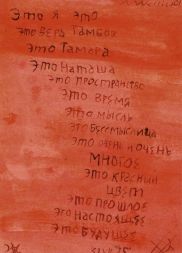 это я это
это Вера Тамбов
это Тамара
это Наташа
это пространство
это время
это мысль
это бессмыслица
это очень и очень
многое
это красный
цвет
это прошлое
это настоящее
это будущее